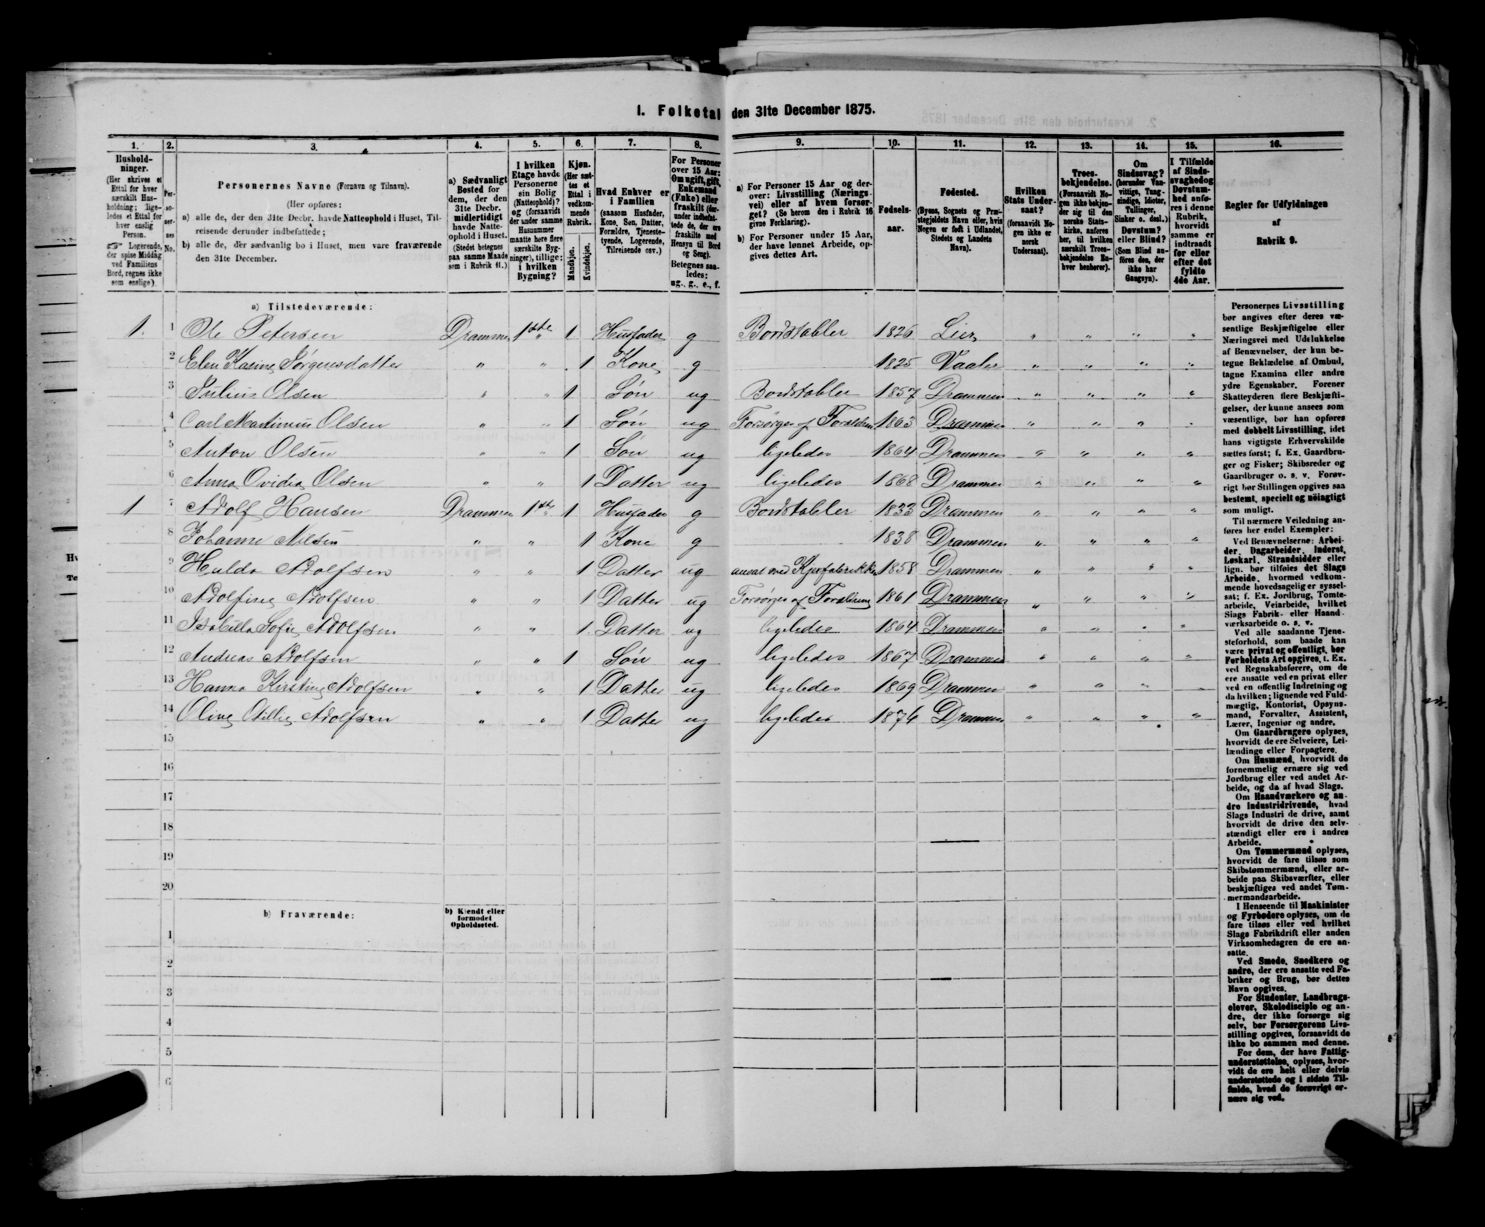 1. Folketal den 31te December 1875.
1. 2. 3. 4. 5. 6. 7. 8. 9. 10. 11. 12. 13. 14. 15. 16.
Husholdninger.
(Her skrives et
Ettal for hver
særskilt Husholdning;
ligeledes et Ettal for
hver enslig
Person.
Logerende,
der spise Middag
ved Familiens
Bord, regnes ikke
som enslige).
Personernes No.
Personernes Navne (Fornavn og Tilnavn).
(Her opføres:
a) alle de, der den 31te Decbr. havde Natteophold i Huset, Tilreisende
derunder indbefattede;
b) alle de, der sædvanlig bo i Huset, men vare fraværende
den 31te December.
a) Sædvanligt
Bosted for
dem, der den
31te Decbr.
midlertidigt
havde Natteophold
i Huset.
(Stedet betegnes
paa samme Maade
som i Rubrik 11.)
I hvilken
Etage havde
Personerne
sin Bolig
(Natteophold)?
og (forsaavidt
der under samme
Husnummer
maatte høre flere
særskilte Bygninger),
tillige:
i hvilken
Bygning?
Kjøn.
(Her sættes
et
Ettal i
vedkommende
Rubrik.
Mandkjøn.
Kvindekjøn.
Hvad Enhver er
i Familien
(saasom Husfader,
Kone, Søn, Datter,
Forældre, Tjenestetyende,
Logerende,
Tilreisende osv.)
For Personer
over 15 Aar:
Om ugift, gift,
Enkemand
(Enke) eller
fraskilt (derunder
indbefattede
de, der ere
fraskilte med
Hensyn til Bord
og Seng).
Betegnes saaledes:
ug., g., e., f.
a) For Personer 15 Aar og derover:
Livsstilling (Næringsvei)
eller af hvem forsørget?
(Se herom den i Rubrik 16
givne Forklaring).
b) For Personer under 15 Aar,
der have lønnet Arbeide, opgives
dettes Art.
Fødselsaar.
Fødested.
(Byens, Sognets og Præstegjeldets
Navn eller, hvis
Nogen er født i Udlandet,
Stedets og Landets
Navn).
Hvilken
Stats Undersaat?
(forsaavidt Nogen
ikke er
norsk
Undersaat).
Troesbekjendelse.
(Forsaavidt Nogen
ikke bekjender
sig til den
norske Statskirke,
anføres
her, til hvilken
særskilt Troesbekjendelse
Enhver
henhører).
Om
Sindssvag?
(herunder Vanvittige,
Tungsindige,
Idioter,
Tullinger,
Sinker o. desl.)
Døvstum?
eller Blind?
(Som Blind anføres
den, der
ikke har
Gangsyn).
I Tilfælde
af Sindssvaghed
og
Døvstumhed
anføres
i denne
Rubrik,
hvorvidt
samme er
indtraadt
før eller
efter det
fyldte
4de Aar.
Regler for Udfyldningen
af
Rubrik 9.
a) Tilstedeværende:
1. 1 Ole Petersen Drammen 1ste " 1 Husfader g Bordstabler 1826 Lier " " " "
2 Elen Karine Jørgensdatter " " 1 Kone g 1825 Vaaler " " " "
3 Julius Olsen " " 1 Søn ug Bordstabler 1857 Drammen " " " "
4 Carl Martinius Olsen " " 1 Søn ug Forsørges af Forældrene 1863 Drammen " " " "
5 Anton Olsen " " 1 Søn ug ligeledes 1864 Drammen " " " "
6 Anna Ovidia Olsen " " 1 Datter ug ligeledes 1868 Drammen " " " "
1 7 Adolf Hansen Drammen 1ste " 1 Husfader g Bordstabler 1833 Drammen " " " "
8 Johanne Nilsen " " 1 Kone g 1838 Drammen " " " "
9 Hulda Adolfsen " " 1 Datter ug 1858 Drammen " " " "
10 Adolfine Adolfsen " " 1 Datter ug Forsørges af Forældrene 1861 Drammen " " " "
11 Isabilla Sofie Adolfsen " " 1 Datter ug ligeledes 1864 Drammen " " " "
12 Andreas Adolfsen " " 1 Søn ug ligeledes 1867 Drammen " " " "
13 Hanna Kirstine Adolfsen " " 1 Datter ug ligeledes 1869 Drammen " " " "
14 Oline Otilie Adolfsen " " 1 Datter ug ligeledes 1874 Drammen " " " "
15
16
17
18
19
20
b) Fraværende:
b) Kjendt eller
formodet
Opholdssted.
1
2
3
4
5
6
Personernes Livsstilling
bør angives efter deres væsentlige
Beskjæftigelse eller
Næringsvei med Udelukkelse
af Benævnelser, der kun betegne
Beklædelse af Ombud,
tagne Examina eller andre
ydre Egenskaber. Forener
Skatteyderen flere Beskjæftigelser,
der kunne ansees som
væsentlige, bør han opføres
med dobbelt Livsstilling, idet
hans vigtigste Erhvervskilde
sættes først; f. Ex. Gaardbruger
og Fisker; Skibsreder og
Gaardbruger o. s. v. Forøvrigt
bør Stillingen opgives saa
bestemt, specielt og nøiagtigt
som muligt.
Til nærmere Veiledning anføres
her endel Exempler:
Ved Benævnelserne: Arbeider,
Dagarbeider, Inderst,
Løskari, Strandsidder eller
lign. bør tilføies det Slags
Arbeide, hvormed vedkommende
hovedsagelig er sysselsat;
f. Ex. Jordbrug, Tomtearbeide,
Veiarbeide, hvilket
Slags Fabrik- eller Haandværksarbeide
o. s. v.
Ved alle saadanne Tjenesteforhold,
som baade kan
være privat og offentligt, bør
Forholdets Art opgives, f. Ex.
ved Regnskabsførere, om de
ere ansatte ved en privat eller
ved en offentlig Indretning og
da hvilken; lignende ved Fuldmægtig,
Kontorist, Opsynsmand,
Forvalter, Assistent,
Lærer, Ingeniør og andre.
Om Gaardbrugere oplyses,
hvorvidt de ere Selveiere, Leilændinge
eller Forpagtere.
Om Husmænd, hvorvidt de
fornemmelig ernære sig ved
Jordbrug eller ved andet Arbeide,
og da af hvad Slags.
Om Haandværkere og andre
Industridrivende, hvad
Slags Industri de drive, samt
hvorvidt de drive den selvstændigt
eller ere i andres
Arbeide.
Om Tømmermænd oplyses,
hvorvidt de fare tilsøs som
Skibstømmermænd, eller arbeide
paa Skibsværfter, eller
beskjæftiges ved andet Tømmermandsarbeide.
I Henseende til Maskinister
og Fyrbødere oplyses, om de
fare tilsøs eller ved hvilket
Slags Fabrikdrift eller anden
Virksomhedsgren de ere ansatte.
Ved Smede, Snedkere og
andre, der ere ansatte ved Fabriker
og Brug, bør dettes
Navn opgives.
For Studenter, Landbrugselever,
Skoledisciple og andre,
der ikke forsørge sig
selv, bør Forsørgerens Livsstilling
opgives, forsaavidt de
ikke bo sammen med denne.
For dem, der have Fattigunderstøttelse,
oplyses, hvorvidt
de ere helt eller delvis
understøttede og i sidste Tilfælde,
hvad de forøvrigt ernære
sig ved.